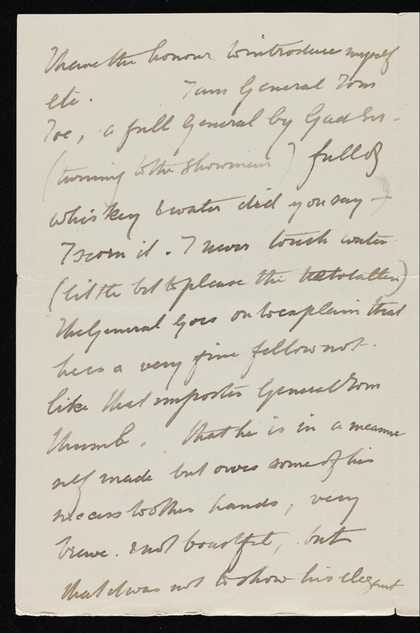 I have the honour to introduce myself
etc. I am General Tom
Toe, a full General by Gad Sir -
(turning to the Showman) full of
whiskey & water did you say -
I scorn it. I never touch water
(little bit to please the teetotallers)
The General goes on to explain that
he is a very fine fellow not
like that imposter General Tom
Thumb. That he is in a measure
self made but owes some of his
success to other hands, very
brave & not boastful, but
that it was not to show his